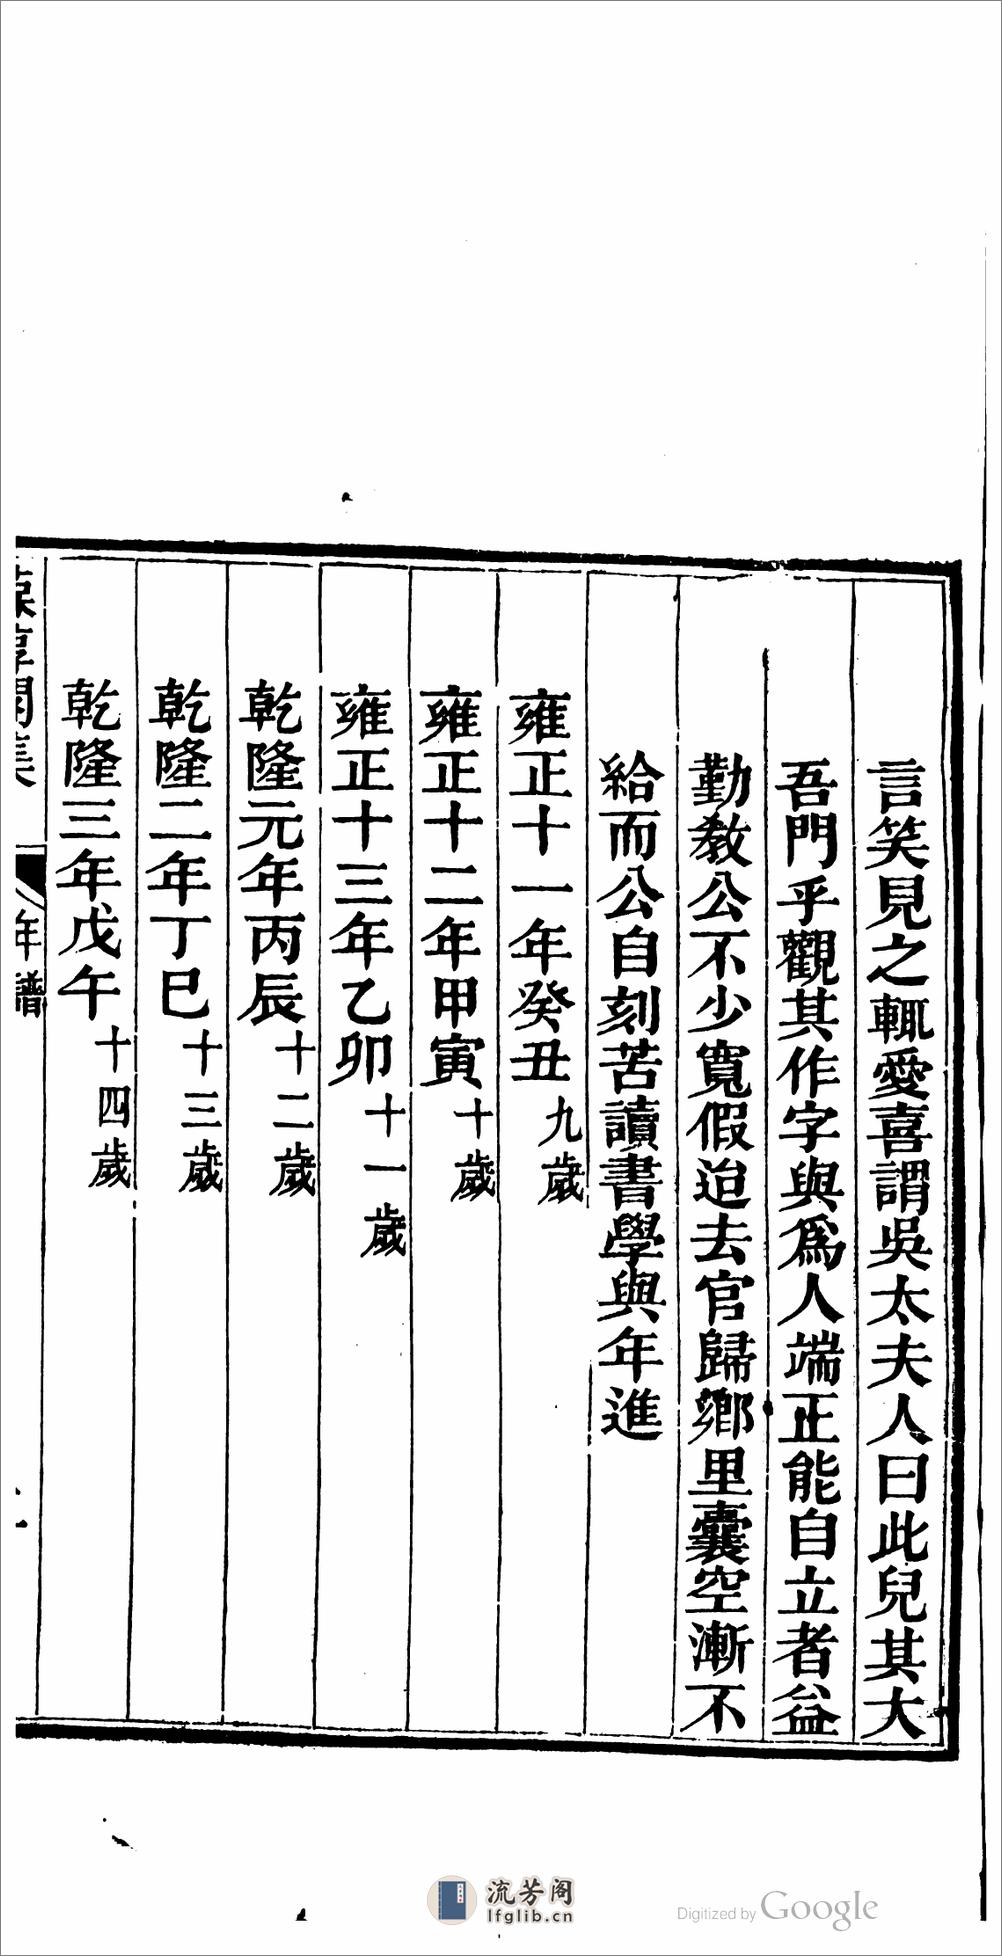 言笑見之輒愛喜謂吳太夫人曰此兒其大
吾門乎觀其作字與爲人端正能自立者益
勤教公不少寬假迨去官歸鄉里囊空漸不
給而公自刻苦讀書學與年進
雍正十一年癸丑九歲
雍正十二年甲寅十歲
雍正十三年乙卯十一歲
乾隆元年丙辰十二歲
乾隆二年丁巳十三歲
乾隆三年戊午十四歲
年譜
流芳阁
lfglib.cn
Digitized by Google